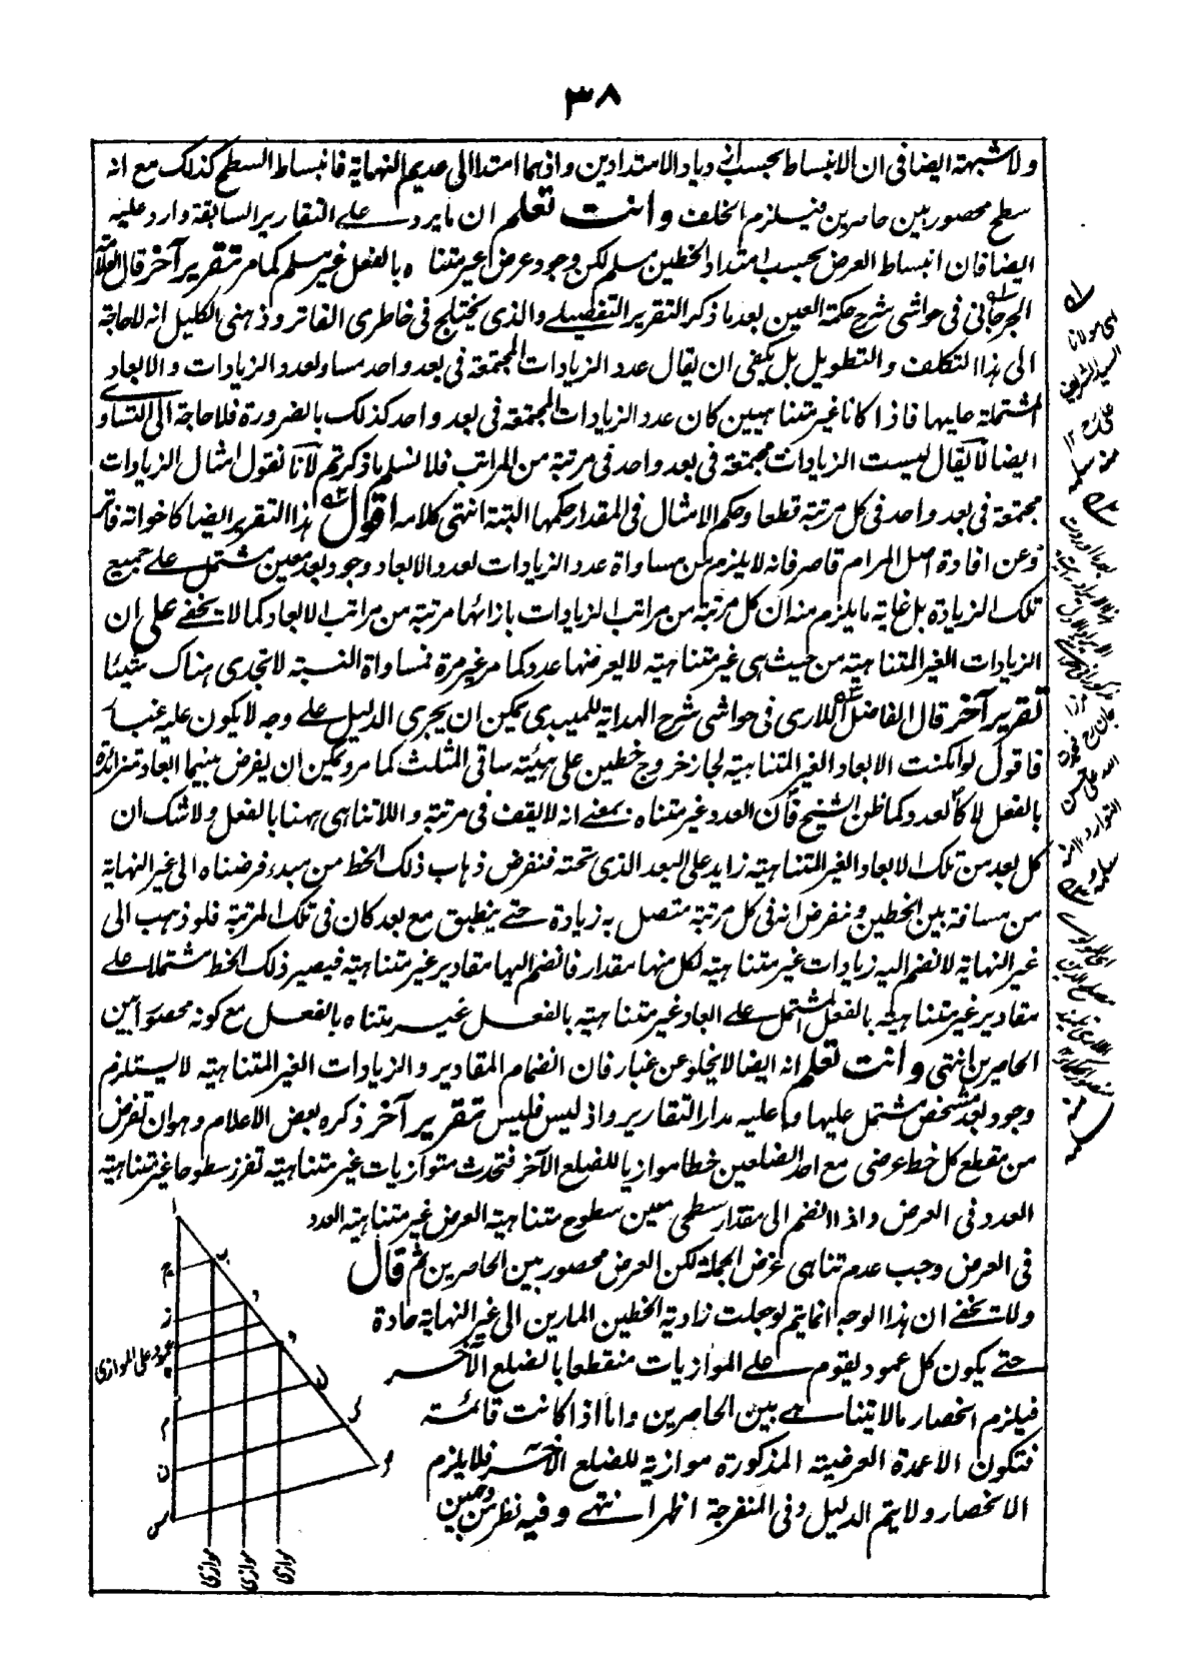 ٣٨
ولا شبهة ايضا فى ان الانبساط بحسب ازدياد الامتدادين واذهما امتدا الى عديم النهاية فانبساط السطح كذلك مع انه
سطح محصور بين حاصرين فيلزم الخلف وانت تعلم ان ما يرد على التقارير السابقة وارد عليه
ايضا فان انبساط العرض بحسب امتداد الخطين مسلم لكن وجود عرض غير متناه بالفعل غير مسلم كما مر تقرير آخر قال العلامة
الجرجانى فى حواشى شرح حكمة العين بعد ما ذكر التقرير التفصيلى والذى يختلج فى خاطرى الفاتر وذهنى الكليل انه لا حاجة
الى هذا التكلف والتطويل بل يكفى ان يقال عدد الزيادات المجتمعة فى بعد واحد مساو لعدد الزيادات والابعاد
المشتملة عليها فاذا كانا غير متناهيين كان عدد الزيادات المجتمعة فى بعد واحد كذلك بالضرورة فلا حاجة الى التساوى
ايضا لا يقال ليست الزيادات مجتمعة فى بعد واحد فى مرتبة من المراتب فلا نسلم ما ذكرتم لانا نقول امثال الزيادات
مجتمعة فى بعد واحد فى كل مرتبة قطعا وحكم الامثال فى المقدار حكمها البتة انتهى كلامه اقول هذا التقرير ايضا كاخواته فاتر
وعن افادة اصل المرام قاصر فانه لا يلزم من مساواة عدد الزيادات لعدد الابعاد وجود بعد معين مشتمل على جميع
تلك الزيادة بل غاية ما يلزم منه ان كل مرتبة من مراتب الزيادات بازائها مرتبة من مراتب الابعاد كما لا يخفى على ان
الزيادات الغير المتناهية من حيث هى غير متناهية لا يعرضها عدد كما مر غير مرة فمساواة النسبة لا تجدى هناك شيئا
تقرير آخر قال الفاضل اللارى فى حواشى شرح الهداية للميبدى يمكن ان يجرى الدليل على وجه لا يكون عليه غبار
فاقول لو امكنت الابعاد الغير المتناهية لجاز خروج خطين على هيئة ساقى المثلث كما مر ويمكن ان يفرض بينهما ابعاد متزائدة
بالفعل لا كالعدد كما ظن الشيخ فان العدد غير متناه بمعنى انه لا يقف فى مرتبة واللاتناهى ههنا بالفعل ولا شك ان
كل بعد من تلك الابعاد الغير المتناهية زايد على البعد الذى تحته فنفرض ذهاب ذلك الخط من مبدء فرضناه الى غير النهاية
من مسافة بين الخطين ونفرض انه فى كل مرتبة متصل به زيادة حتى ينطبق مع بعد كان فى تلك المرتبة فلو ذهب الى
غير النهاية لانضم اليه زيادات غير متناهية لكل منها مقدار فانضم اليها مقادير غير متناهية فيصير ذلك الخط مشتملا على
مقادير غير متناهية بالفعل المشتمل على ابعاد غير متناهية بالفعل غير متناه بالفعل مع كونه محصورا بين
الحاصرين انتهى وانت تعلم انه ايضا لا يخلو عن غبار فان انضمام المقادير والزيادات الغير المتناهية لا يستلزم
وجود بعد مشخص مشتمل عليها وما عليه مدار التقارير واذ ليس فليس تقرير آخر ذكره بعض الاعلام وهو ان تفرض
من مقطع كل خط عرضى مع احد الضلعين خطا موازيا للضلع الآخر فتحدث متوازيات غير متناهية تفرز سطوحا غير متناهية
العدد فى العرض واذا انضم الى مقدار سطحى معين سطوح متناهية العرض غير متناهية العدد
فى العرض وجب عدم تناهى عرض الجملة لكن العرض محصور بين الحاصرين ثم قال
ولا يخفى ان هذا الوجه انما يتم لو جعلت زاوية الخطين المارين الى غير النهاية حادة
حتى يكون كل عمود يقوم على الموازيات منقطعا بالضلع الآخر
فيلزم انحصار ما لا يتناهى بين الحاصرين واما اذا كانت قائمة
فتكون الاعمدة العرضية المذكورة موازية للضلع الآخر فلا يلزم
الانحصار ولا يتم الدليل وفى المنفرجة اظهر انتهى وفيه نظر من وجهين
ا
ب
ج
د
ز
ه
عمود على الموازى
م
ن
س
موازى
موازى
موازى
اى مولانا
السيد الشريف
على رح ١٢
منه سلمه